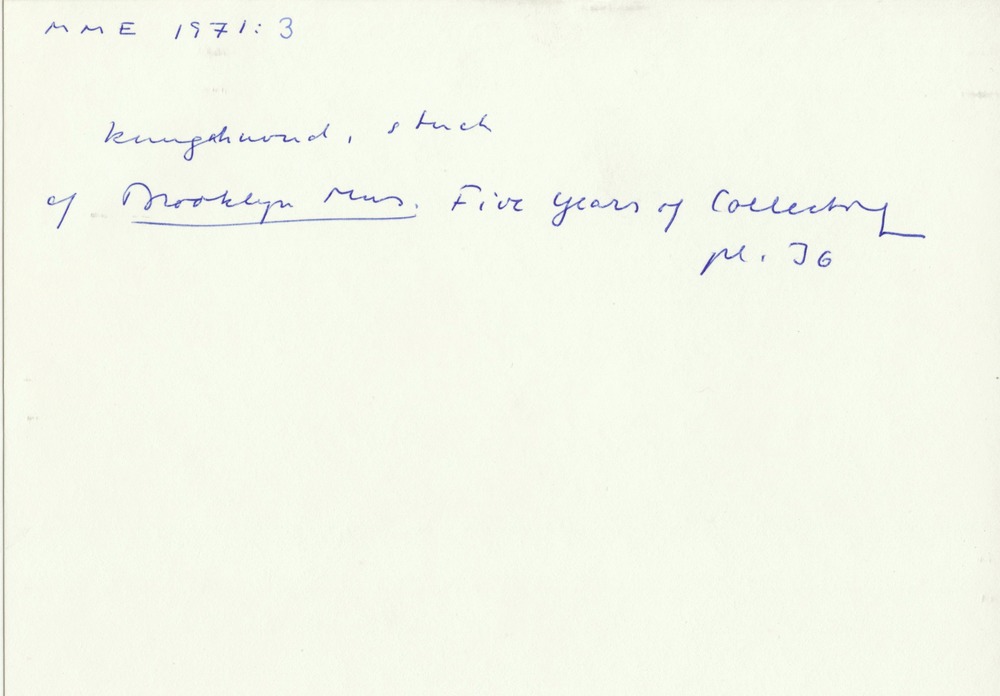 MME 1971:3
kungahuvud, stuck
cf Brooklyn Mus. Five Years of Collecting
pl. 36